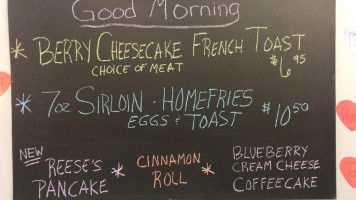 Good Morning
BERRY CHEESECAKE FRENCH TOAST
CHOICE OF MEAT $6.95
7oz SIRLOIN · HOMEFRIES $10.50
EGGS & TOAST
NEW
REESE'S
PANCAKE
CINNAMON
ROLL
BLUEBERRY
CREAM CHEESE
COFFEECAKE